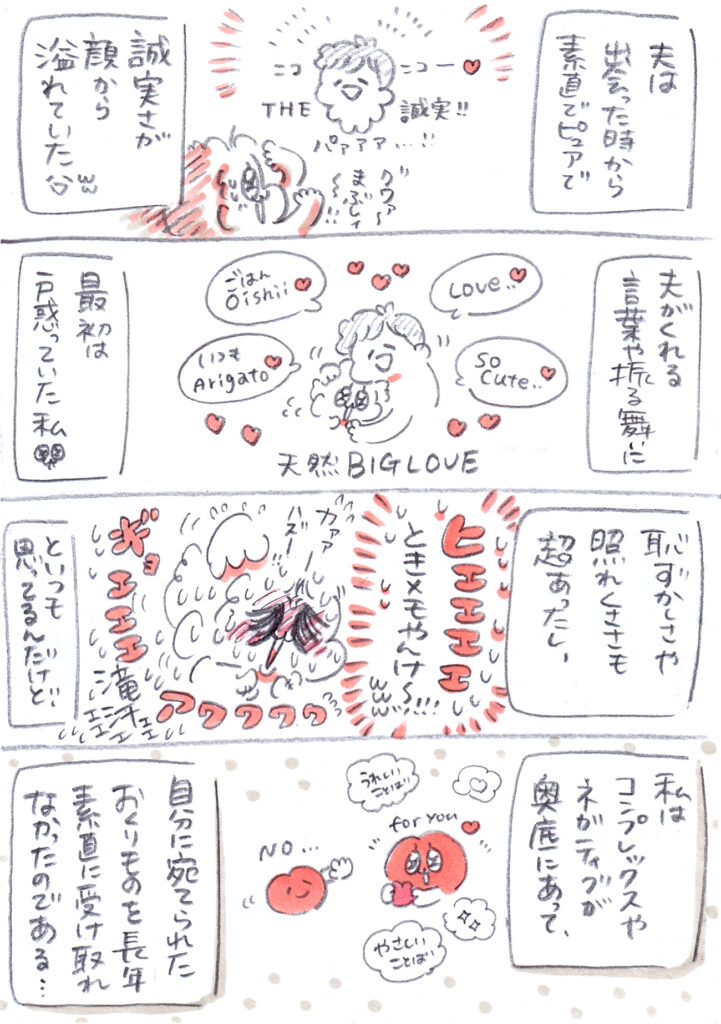 夫は
出会った時から
素直でピュアで
ニコ ニコー
THE 誠実!!
パァアア...!!
グウァ〜
まぶしィ
〜!!
誠実さが
顔から
溢れていた ww
夫がくれる
言葉や振る舞いに
Love..
So
cute..
ごはん
Oishii
いつも
Arigato
天然BIGLOVE
最初は
戸惑っていた私
恥ずかしさや
照れくささも
超あったし、
ヒエエエエエ
ときメモやんけ〜!!!
www
カァァ
ハズー!!
ギョエエエエ
滝汗ェェェ
アワワワワ
といつも
思ってるんだけど、
私は
コンプレックスや
ネガティヴが
奥底にあって、
うれしい
ことば
for you
NO...
やさしい
ことば
自分に宛てられた
おくりものを長年
素直に受け取れ
なかったのである...